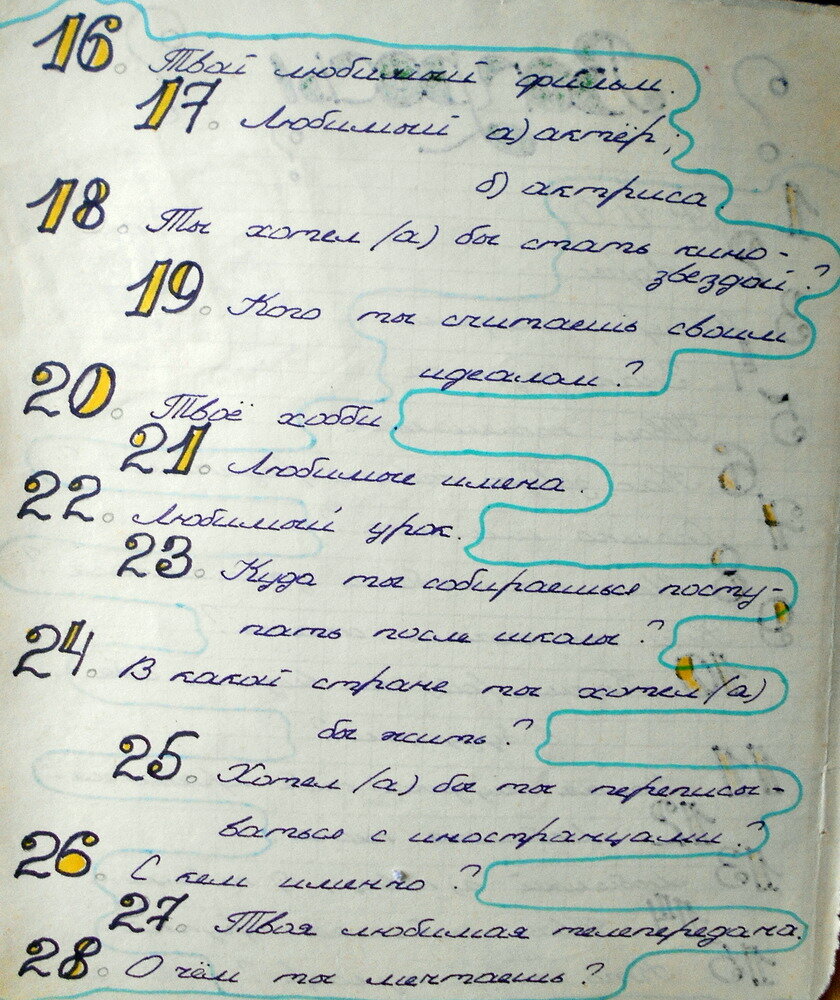 16. Твой любимый фильм.
17. Любимый а) актёр;
б) актриса.
18. Ты хотел/(а) бы стать кино-
звездой?
19. Кого ты считаешь своим
идеалом?
20. Твоё хобби.
21. Любимые имена.
22. Любимый урок.
23. Куда ты собираешься посту-
пать после школы?
24. В какой стране ты хотел/(а)
бы жить?
25. Хотел/(а) бы ты переписы-
ваться с иностранцами?
26. С кем именно?
27. Твоя любимая телепередача.
28. О чём ты мечтаешь?